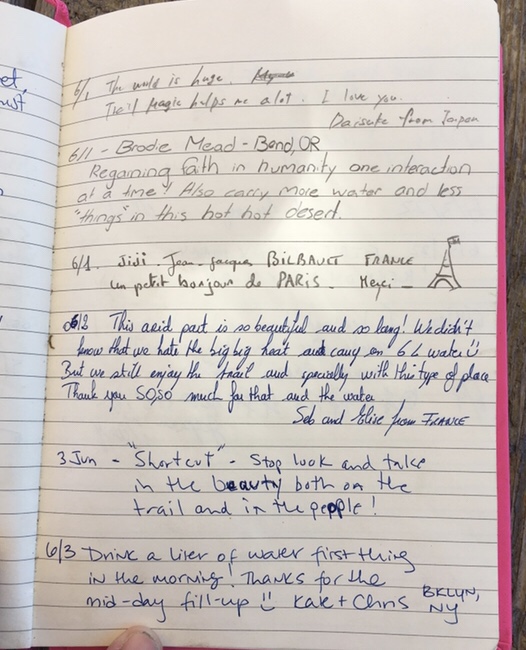 et,
6/1 The world is huge.
Trail Magic helps me alot. I love you.
Daisuke from Japan
6/1 - Brodie Mead - Bend, OR
Regaining faith in humanity one interaction
at a time! Also carry more water and less
"things" in this hot hot desert.
6/1. JiJi. Jean-Jacques BILBAULT FRANCE
un petit bonjour de PARIS. Merci -
06/2 This arid part is so beautiful and so long! We didn't
know that we hate the big big heat and carry on 6 L water
But we still enjoy the trail and specially with this type of place
Thank you SO,SO much for that and the water
Seb and from FRANCE
3 Jun - "Shortcut" - Stop look and take
in the beauty both on the
trail and in the people!
6/3 Drink a liter of water first thing
in the morning! Thanks for the
mid-day fill-up Kate + Chris BKLYN,
NY